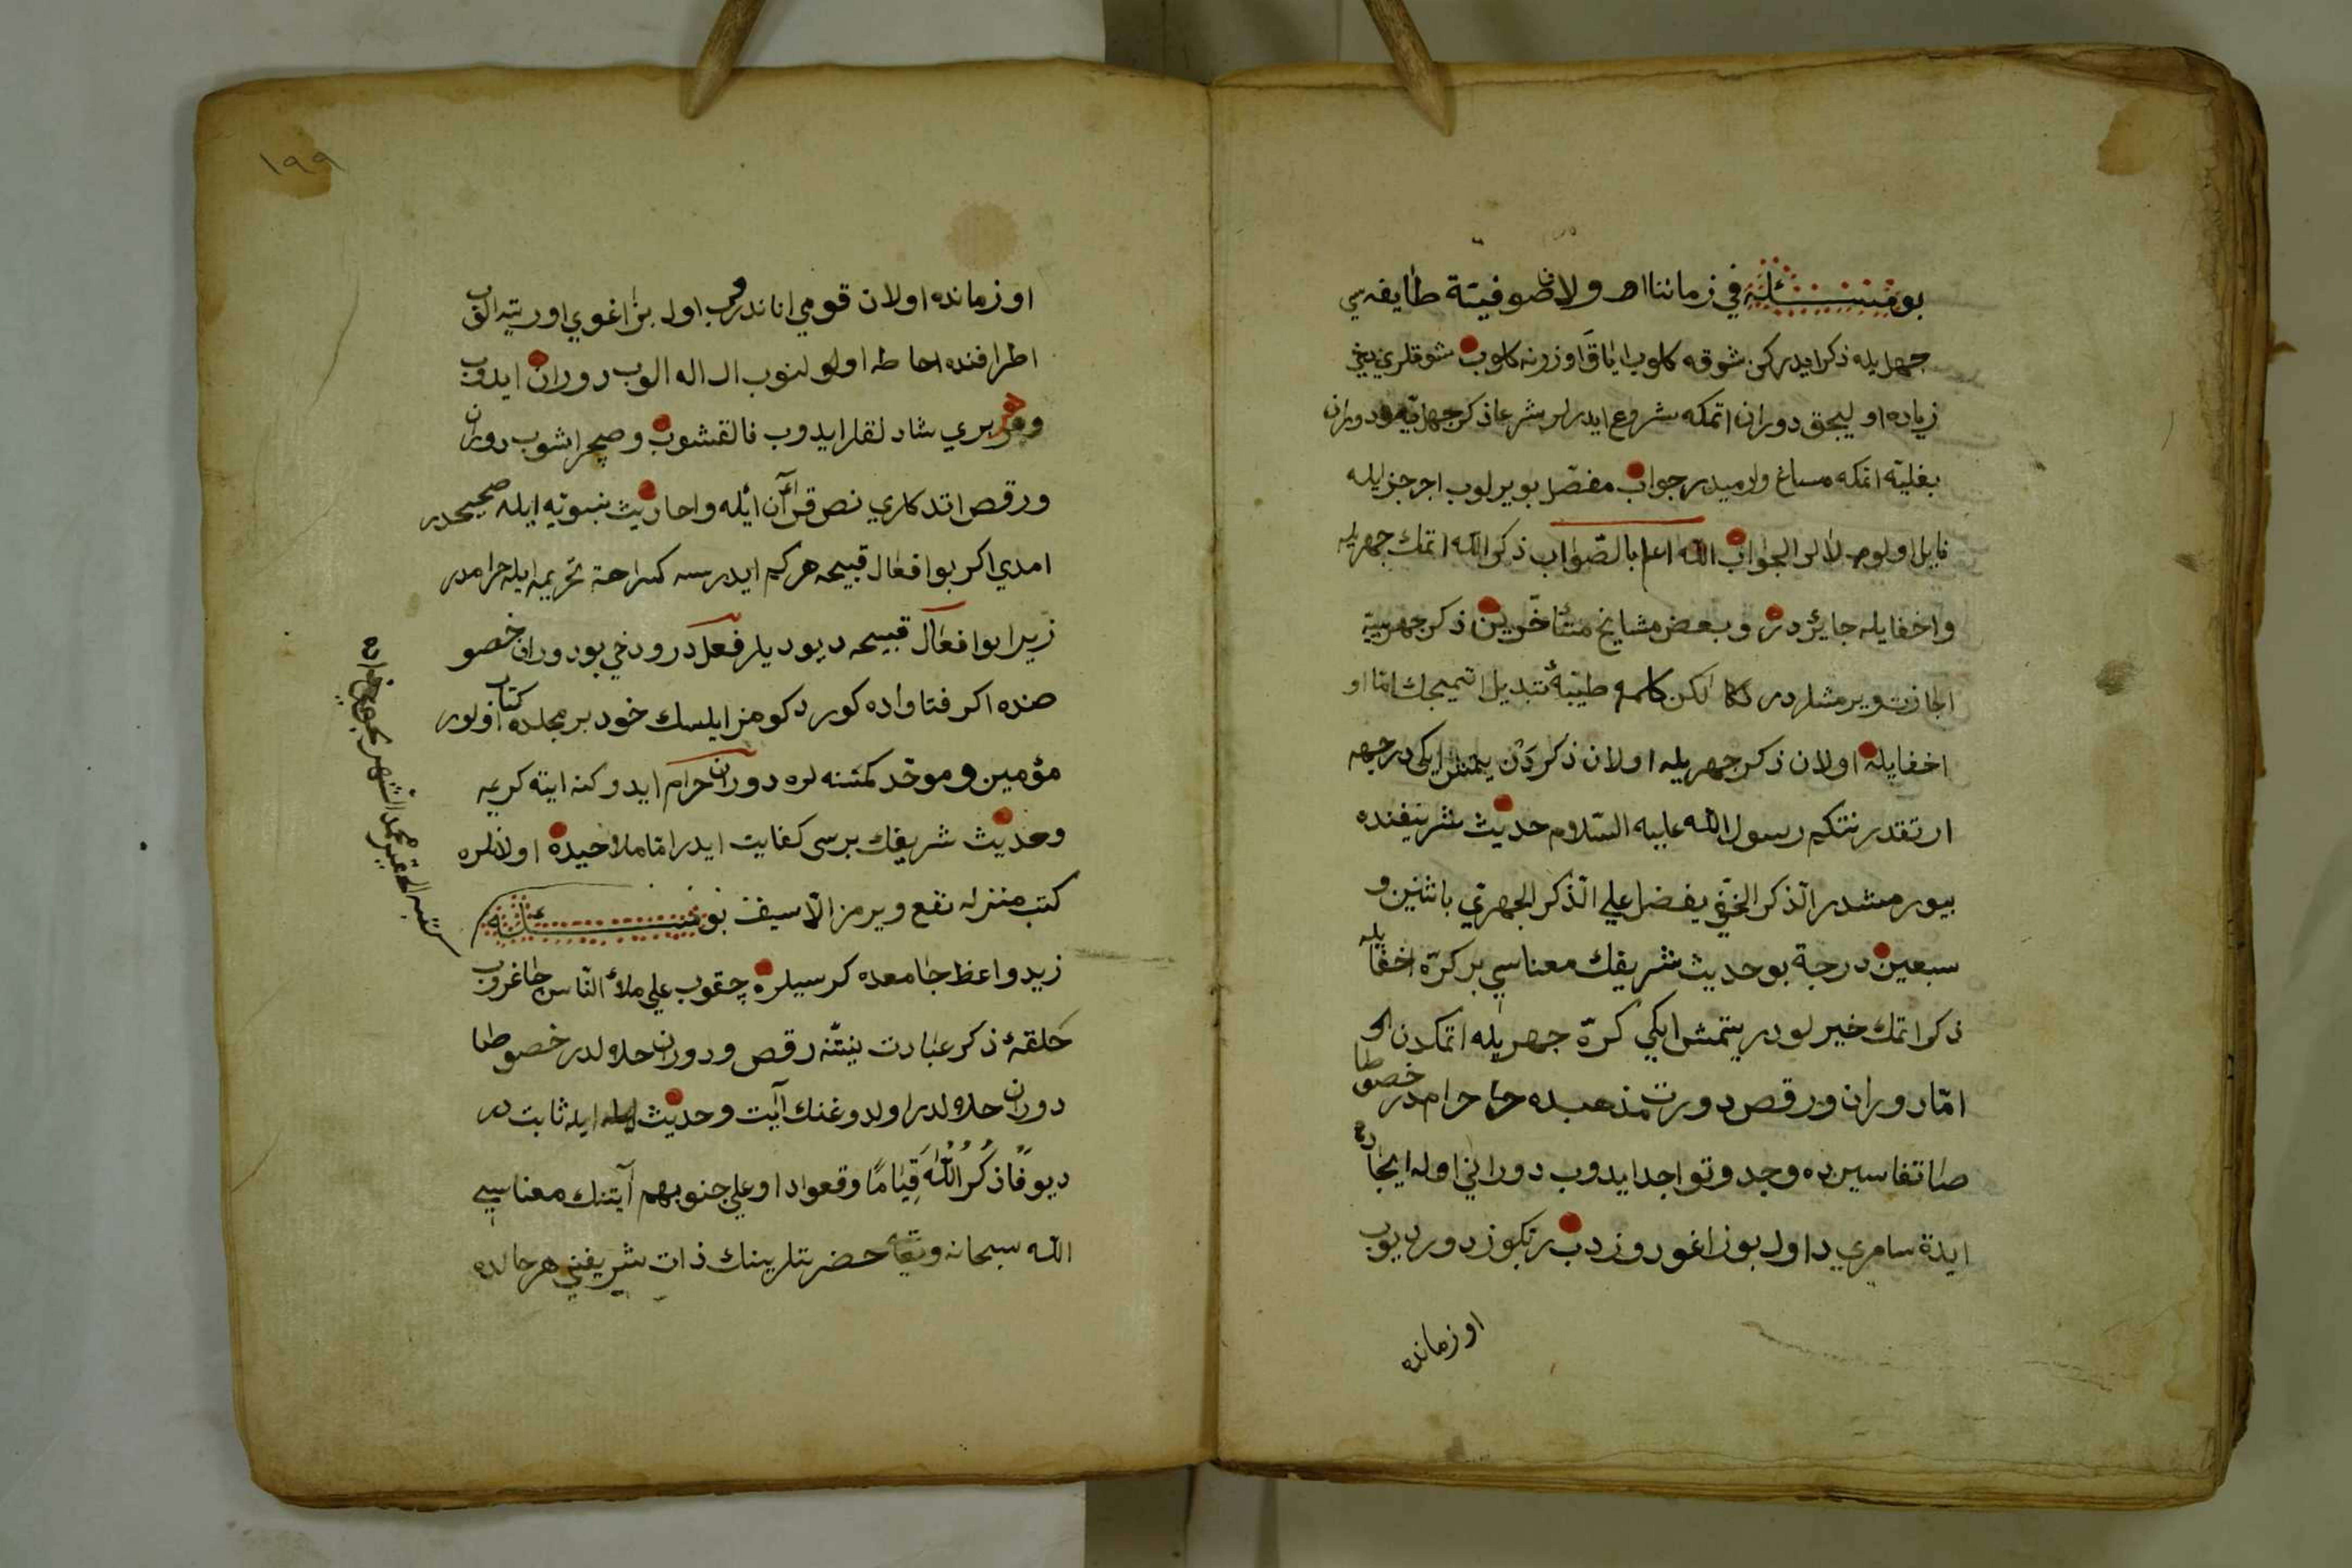 بو مسئله في زماننا اولان صوفيّة طايفه سي
جهريله ذكر ايدركن شوقه كلوب اياق اوزرنه كلوب شوقلري دخي
زياده اوليجق دوران اتمكه شروع ايدرلر شرعا ذكر جهريّه و دوران
اتمكه مساغ وارميدر جواب مفصّل بويرلوب اجر جزيله
نايل اوله لر الجواب الله اعلم بالصّواب ذكر الله اتمك جهريله
واخفايله جايزدر و بعض مشايخ متأخّرين ذكر جهريّه
اجازت ويرمشلردر لكن كلمه طيّبهٔ تبديل اتميجك امّا او
اخفايله اولان ذكر جهريله اولان ذكردن يتمش ايكي درجه
ارتقدر نتكم رسول الله عليه السّلام حديث شريفنده
بيورمشدر الذكر الخفي يفضل علي الذكر الجهري باثنين و
سبعين درجة بو حديث شريفك معناسي بر كرّه اخفايله
ذكر اتمك خيرلودر يتمش ايكي كرّه جهريله اتمكدن
امّا دوران ورقص دورت مذهبده حرامدر خصوصا
تفاسيرده وجد وتواجد ايدوب دوراني اول ايجاد
ايدن سامري در اول بوزاغو دوزدب رتكوزدور ديوب
او زمانده
١٩٩
او زمانده اولان قومي اناندرب اول بزاغوي اورتيه الوب
اطرافنده احاطه اولو لنوب ال اله الوب دوران ايدوب
وهر بري شادلقلر ايدوب قالقشوب وصچراشوب دوران
ورقص اتدكلري نص قرآن ايله واحاديث نبويّه ايله صحيحدر
امدي اكر بو افعال قبيحه هر كيم ايدرسه كراهة تحريمه ايله حرامدر
زيرا بو افعال قبيحه ديوديلر فعلدر ودخي بو دوران خصو
صنده اكر فتاواده كوردكومز ايلسك خود بر مجلد كتاب اولور
مؤمين و موحّد كمسنه لره دوران حرام ايدوكنه ايته كريمه
وحديث شريفك برسي كفايت ايدر امّا ملاحيده اولانلره
كتب منزله نفع ويرمز الّا سيف بو مسئله
زيد واعظ جامعده كرسيلره چقوب علي ملأ النّاس چاغروب
حلقهٔ ذكر عبادت نيتنه رقص ودوران حلالدر خصوصا
دوران حلالدر اولدوغنك آيت وحديث ايله ثابتدر
ديو فَاذكُرُ اللهَ قِيامًا وقعودا وعلي جنوبهم آيتنك معناسي
الله سبحانه وتعالى حضرتلرينك ذات شريفني هر حالده
كتبه الفقير محمد الشهير